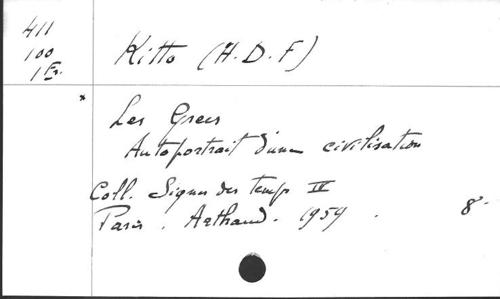 411
100
1 Fr.
Kitto (H.D.F)
* Les Grecs
Autoportrait d'une civilisation
Coll. Signes des temps IV
Paris. Arthaud. 1959. 8°